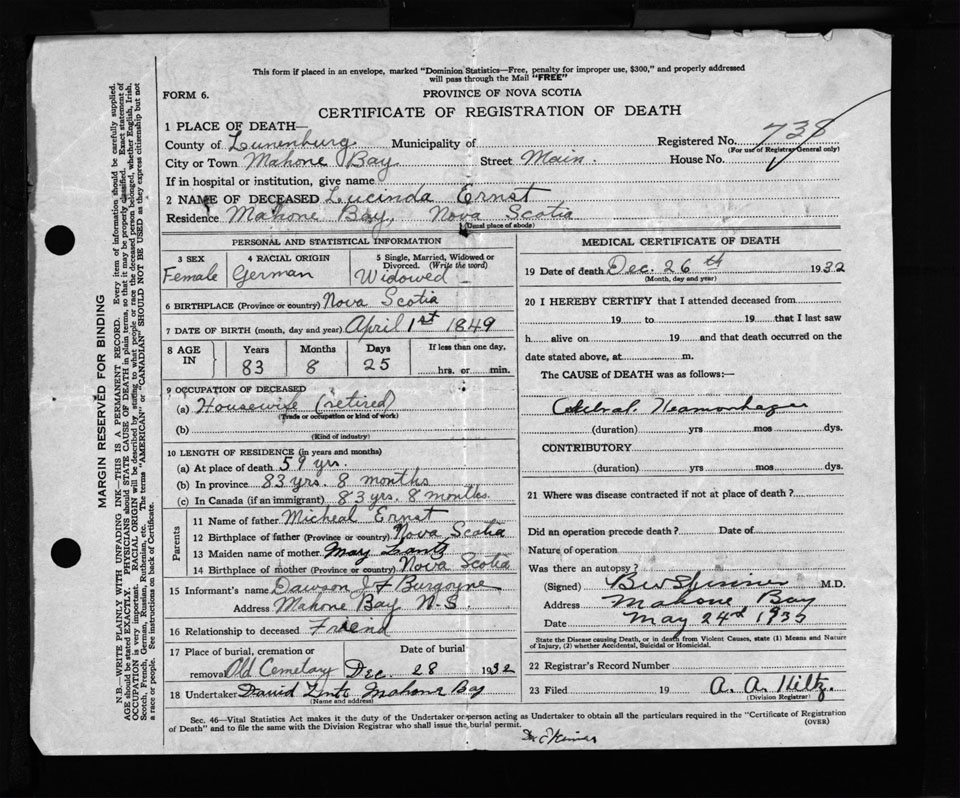 This form if placed in an envelope, marked "Dominion Statistics—Free, penalty for improper use, $300," and properly addressed
will pass through the Mail "FREE"
FORM 6.
PROVINCE OF NOVA SCOTIA
CERTIFICATE OF REGISTRATION OF DEATH
1 PLACE OF DEATH—
County of Lunenburg Municipality of Registered No. 738
(For use of Registrar General only)
City or Town Mahone Bay Street Main. House No.
If in hospital or institution, give name
2 NAME OF DECEASED Lucinda Ernst
Residence Mahone Bay, Nova Scotia
(Usual place of abode)
PERSONAL AND STATISTICAL INFORMATION
3 SEX 4 RACIAL ORIGIN 5 Single, Married, Widowed or
Divorced. (Write the word)
Female German Widowed –
6 BIRTHPLACE (Province or country) Nova Scotia
7 DATE OF BIRTH (month, day and year) April 1st 1849
8 AGE IN Years Months Days If less than one day,
83 8 25 hrs. or min.
9 OCCUPATION OF DECEASED
(a) Housewife (retired)
(Trade or occupation or kind of work)
(b)
(Kind of industry)
10 LENGTH OF RESIDENCE (in years and months)
(a) At place of death 59 yrs.
(b) In province 83 yrs. 8 months
(c) In Canada (if an immigrant) 83 yrs. 8 months.
Parents
11 Name of father Micheal Ernst
12 Birthplace of father (Province or country) Nova Scotia
13 Maiden name of mother May Lantz
14 Birthplace of mother (Province or country) Nova Scotia
15 Informant's name Dawson J F Burgoyne
Address Mahone Bay N-S.
16 Relationship to deceased Friend
17 Place of burial, cremation or Date of burial
removal Old Cemetary Dec. 28 1932
18 Undertaker David Mahone Bay
(Name and address)
MEDICAL CERTIFICATE OF DEATH
19 Date of death Dec. 26th 1932
(Month, day and year)
20 I HEREBY CERTIFY that I attended deceased from
19 to 19 that I last saw
h alive on 19 and that death occurred on the
date stated above, at m.
The CAUSE of DEATH was as follows:—
(duration) yrs mos dys.
CONTRIBUTORY
(duration) yrs mos dys.
21 Where was disease contracted if not at place of death?
Did an operation precede death? Date of
Nature of operation
Was there an autopsy?
(Signed) M.D.
Address Mahone Bay
Date May 24rd 1935
State the Disease causing Death, or in death from Violent Causes, state (1) Means and Nature
of Injury, (2) whether Accidental, Suicidal or Homicidal.
22 Registrar's Record Number
23 Filed 19 A. A. Hiltz.
(Division Registrar)
Sec. 46—Vital Statistics Act makes it the duty of the Undertaker or person acting as Undertaker to obtain all the particulars required in the "Certificate of Registration
of Death" and to file the same with the Division Registrar who shall issue the burial permit. (OVER)
MARGIN RESERVED FOR BINDING
N.B.—WRITE PLAINLY WITH UNFADING INK—THIS IS A PERMANENT RECORD. Every item of information should be carefully supplied.
AGE should be stated EXACTLY. PHYSICIANS should STATE CAUSE OF DEATH in plain terms, so that it may be properly classified. Exact statement of
OCCUPATION is very important. RACIAL ORIGIN will be described by stating to what people or race the deceased person belonged, whether English, Irish,
Scotch, French, German, Russian, Ruthenian, etc. The terms "AMERICAN" or "CANADIAN" SHOULD NOT BE USED as they express citizenship but not
a race or people. See instructions on back of Certificate.